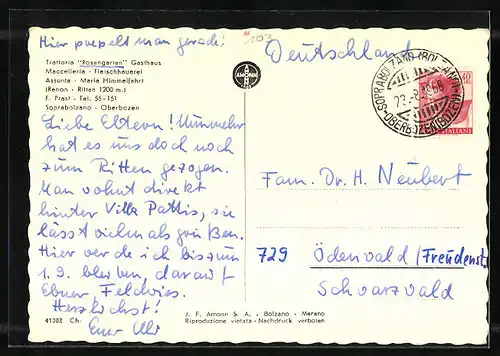 Hier popelt man gerade!
103
Trattoria "Rosengarten" Gasthaus
Macelleria - Fleischhauerei
Assunta - Maria Himmelfahrt
(Renon - Ritten 1200 m.)
F. Prast - Tel. 55-151
Soprabolzano - Oberbozen
AMONN
Deutschland
SOPRABOLZANO (BOLZANO)
OBERBOZEN (BOZEN)
40
ITALIANI
Liebe Eltern! Nunmehr
hat es uns doch noch
zum Ritten gezogen.
Man wohnt direkt
hinter Villa Pattis, sie
lässt vielmals grüßen.
Hier werde ich bis zum
1. 9. bleiben, darauf
Herzlichst!
Euer
Fam. Dr. H. Neubert
729 Ödenwald (Freudenst.
Schwarzwald
41302 Ch-
J. F. Amonn S. A. - Bolzano - Merano
Riproduzione vietata - Nachdruck verboten